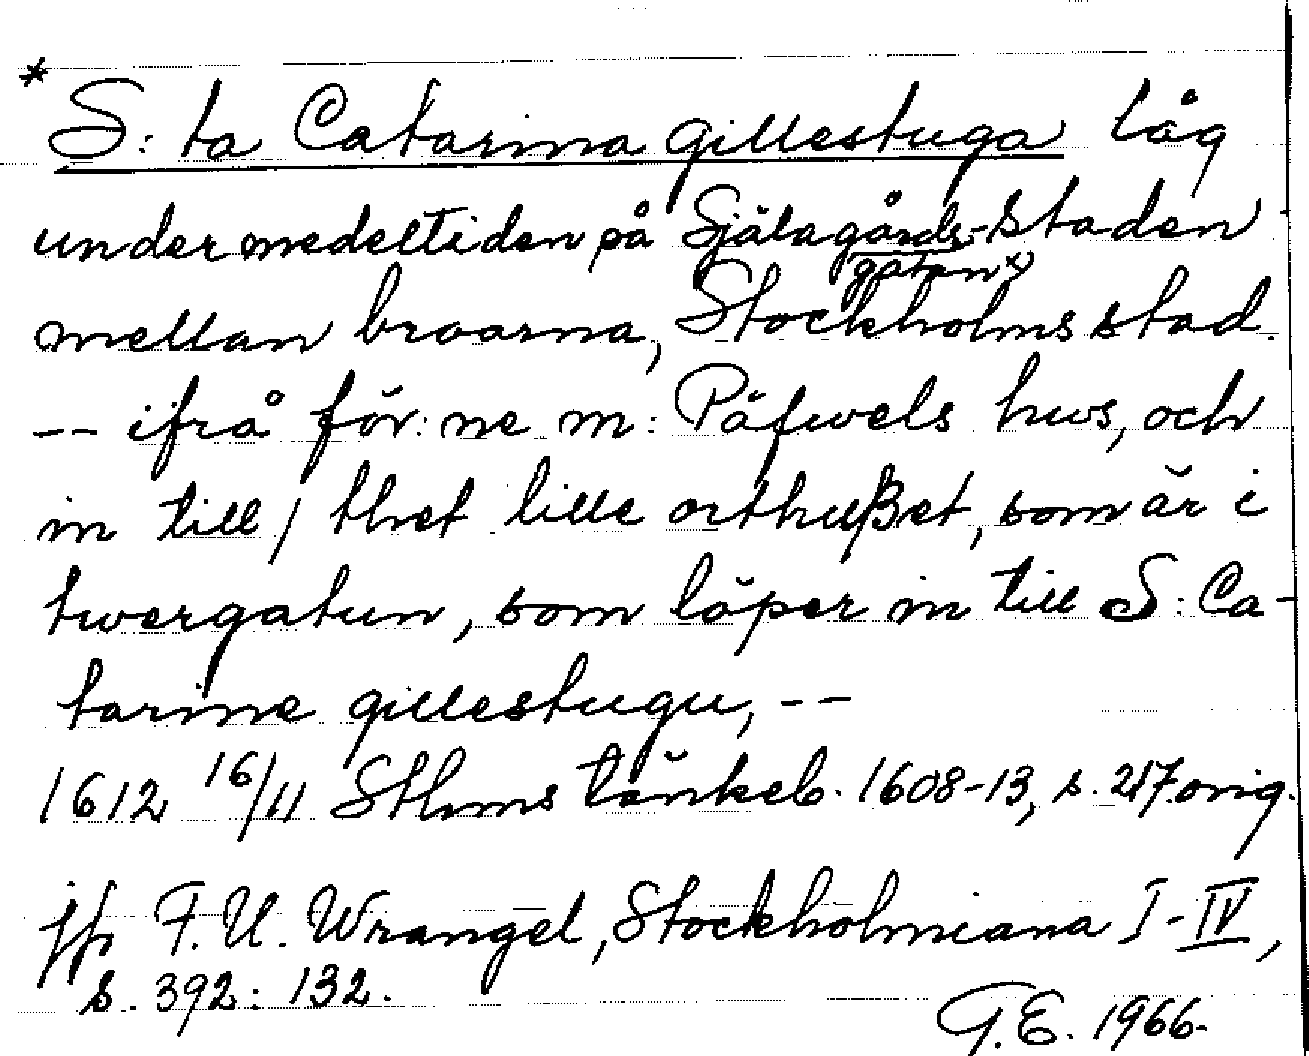 * S:ta Catarina gillestuga låg
under medeltiden på Själagårds-staden
gatan x)
mellan broarna, Stockholms stad.
-- ifrå för:ne m: Påfwels hws, och
in till / thet lille orthusset, som är i
twergatun, som löper in till S: Ca-
tarine gillestugu, --
1612 16/11 Sthms tänkeb. 1608-13, s. 217. orig.
jfr F. U. Wrangel, Stockholmiana I-IV,
s. 392: 132.
G.E. 1966.